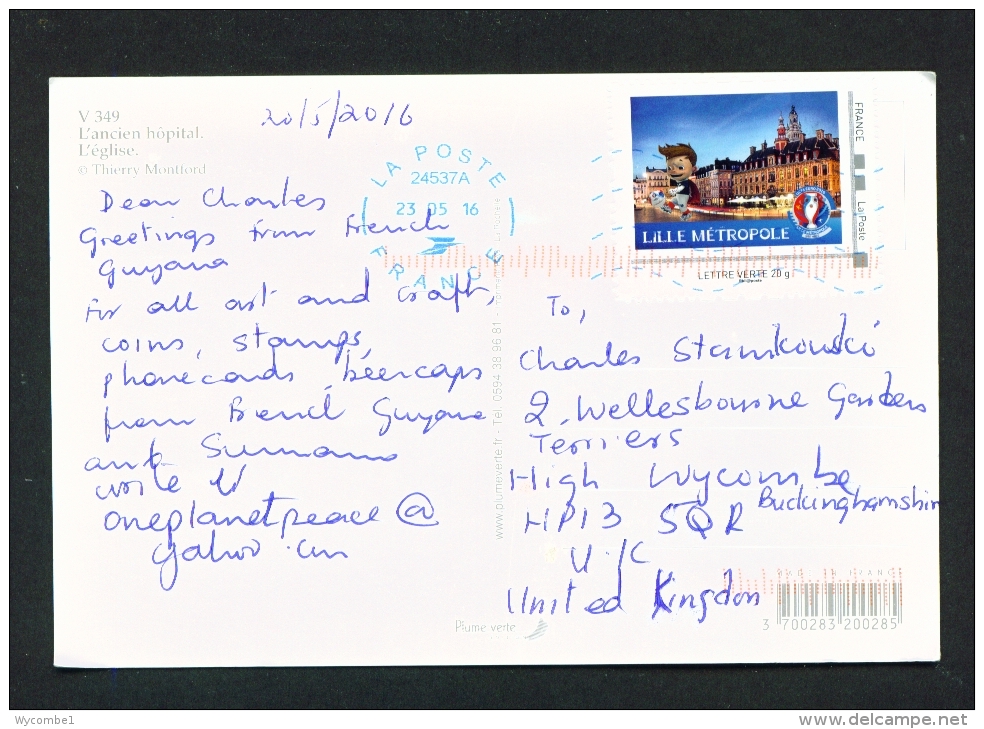 V 349
L'ancien hôpital.
L'église.
© Thierry Montford
20/5/2016
LA POSTE
24537A
23 05 16
FRANCE
LILLE MÉTROPOLE
FRANCE
La Poste
LETTRE VERTE 20 g
Dear Charles
Greetings from French
Guyana
For all art and craft,
coins, stamps,
phonecards, beercaps
from French Guyana
and
write
oneplanetpeace@
yahoo.com
www.plumeverte.fr - Tél. 0594 38 96 81 -
To,
Charles Stamkouski
2, Wellesbourne Gardens
Terriers
High Wycombe
Buckinghamshir
HP13 5QR
U.K
United Kingdom
Plume verte
3 700283 200285
Wycombe1
www.delcampe.net